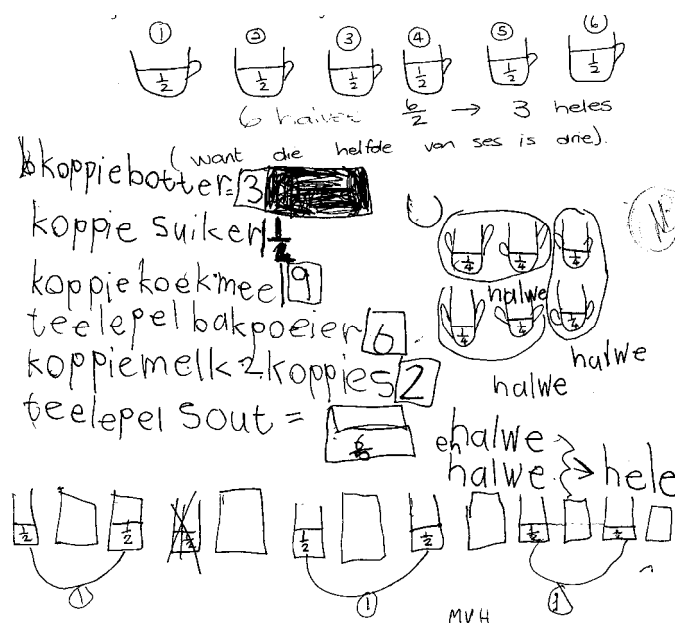 ① ② ③ ④ ⑤ ⑥
1/2 1/2 1/2 1/2 1/2 1/2
6 halves 6/2 → 3 heles
(want die helfde van ses is drie).
koppiebotter= 3
koppie suiker 1/2
koppiekoekmeel 9
teelepelbakpoeier 6
koppiemelk=2koppies 2
teelepel sout =
1/4 1/4 1/4
halwe
1/4 1/4 1/4
halwe
halwe
en halwe
halwe > hele
1/2 1/2 1/2 1/2 1/2 1/2 1/2
1 1 1
MVH